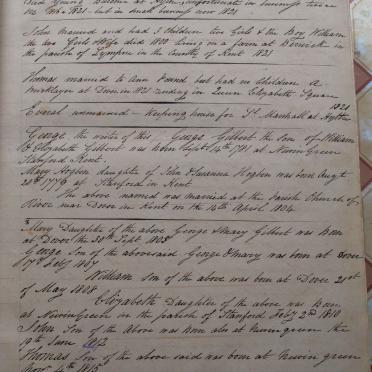 Died Young became at Hythe unfortunate in business twice
in 1821 but in small business now 1821
John married and had 3 children two Girls & the Boy William
the two Girls Wife died 1820 living on a farm at Berwick in
the parish of Lympne in the County of Kent 1821
Thomas married to Ann but had no Children A
at Dover in 1821 residing in Queen Elizabeth Square
1821
unmarried - keeping house for Sr Marshall at Hythe
George the writer of this George Gilbert the Son of William
& Elizabeth Gilbert was Born Sept 14th 1781 at Newin Green
Stanford Kent.
Mary Hogben daughter of John & Susanna Hogben was born Augt
28th 1776 at Stanford in Kent
The above named was married at the Parish Church of
River near Dover in Kent on the 14th April 1804.
Mary Daughter of the above George & Mary Gilbert was Born
at Dover the 30th Sept 1805
George Son of the abovesaid George & Mary was born at Dover
17th Feby 1807
William Son of the above was born at Dover 21st
of May 1808
Elizabeth Daughter of the above was Born
at Newin Green in the parish of Stanford Feby 2nd 1810
John Son of the Above was Born also at Newingreen the
19th June 1812
Thomas Son of the above said was born at Newin green
Novr 4th 1815